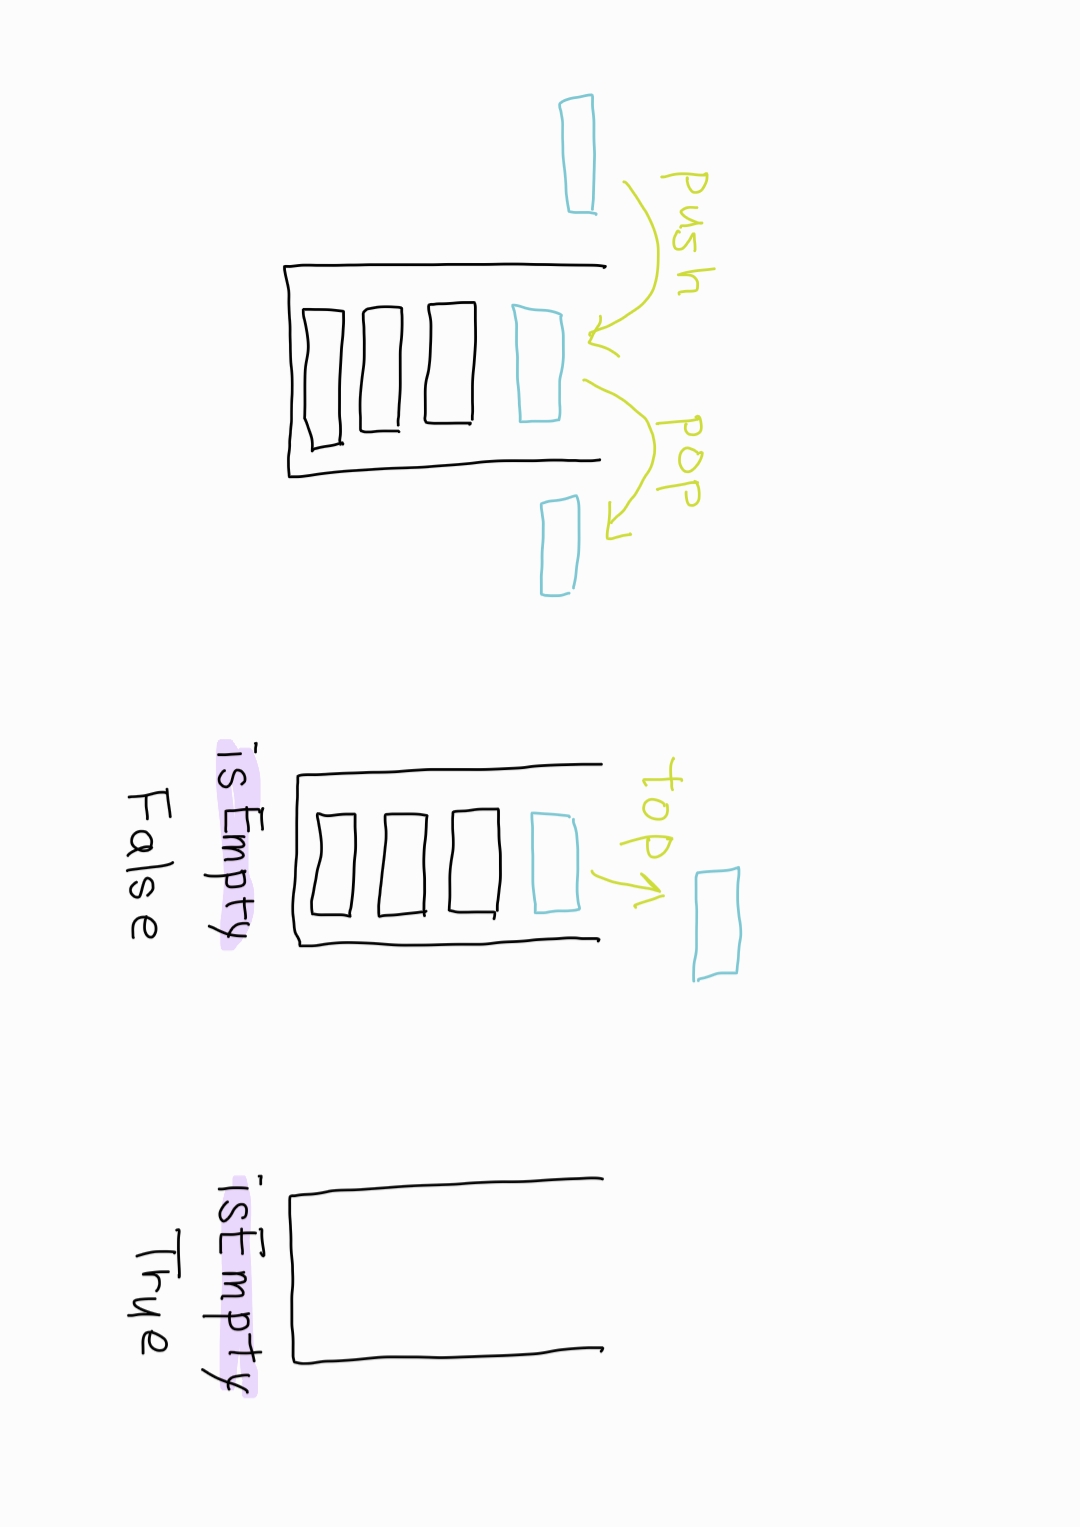 push
pop
top
isEmpty
False
isEmpty
True